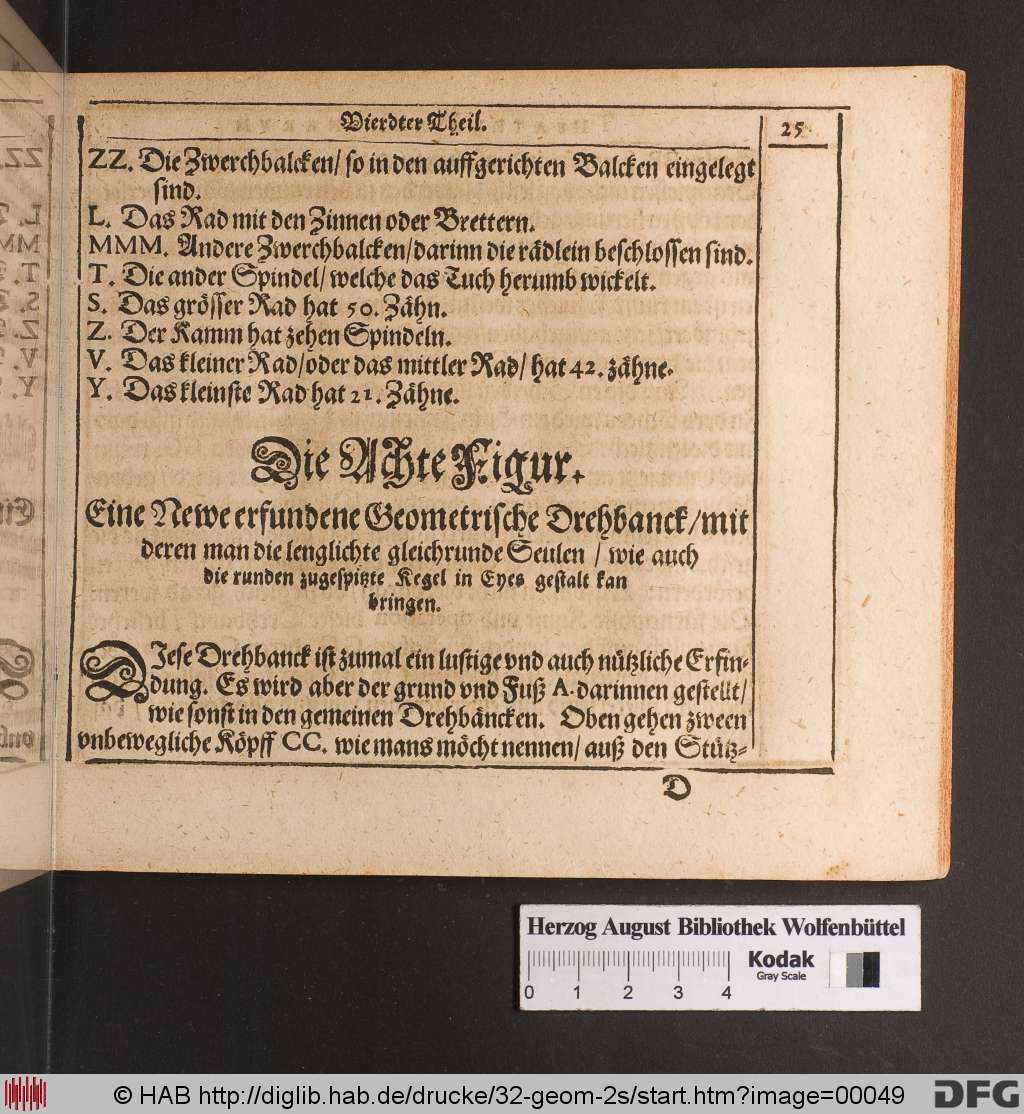 Vierdter Theil.
25
ZZ. Die Zwerchbalcken/ so in den auffgerichten Balcken eingelegt
sind.
L. Das Rad mit den Zinnen oder Brettern.
MMM. Andere Zwerchbalcken/darinn die rädlein beschlossen sind.
T. Die ander Spindel/ welche das Tuch herumb wickelt.
S. Das grösser Rad hat 50. Zähn.
Z. Der Kamm hat zehen Spindeln.
V. Das kleiner Rad/oder das mittler Rad/ hat 42. zähne.
Y. Das kleinste Rad hat 21. Zähne.
Die Achte Figur.
Eine Newe erfundene Geometrische Drehbanck/mit
deren man die lenglichte gleichrunde Seulen / wie auch
die runden zugespitzte Kegel in Eyes gestalt kan
bringen.
DJese Drehbanck ist zumal ein lustige vnd auch nützliche Erfin-
dung. Es wird aber der grund vnd Fuß A. darinnen gestellt/
wie sonst in den gemeinen Drehbäncken. Oben gehen zween
vnbewegliche Köpff CC. wie mans möcht nennen/ auß den Stütz-
D
Herzog August Bibliothek Wolfenbüttel
Kodak
Gray Scale
0 1 2 3 4
© HAB http://diglib.hab.de/drucke/32-geom-2s/start.htm?image=00049
DFG